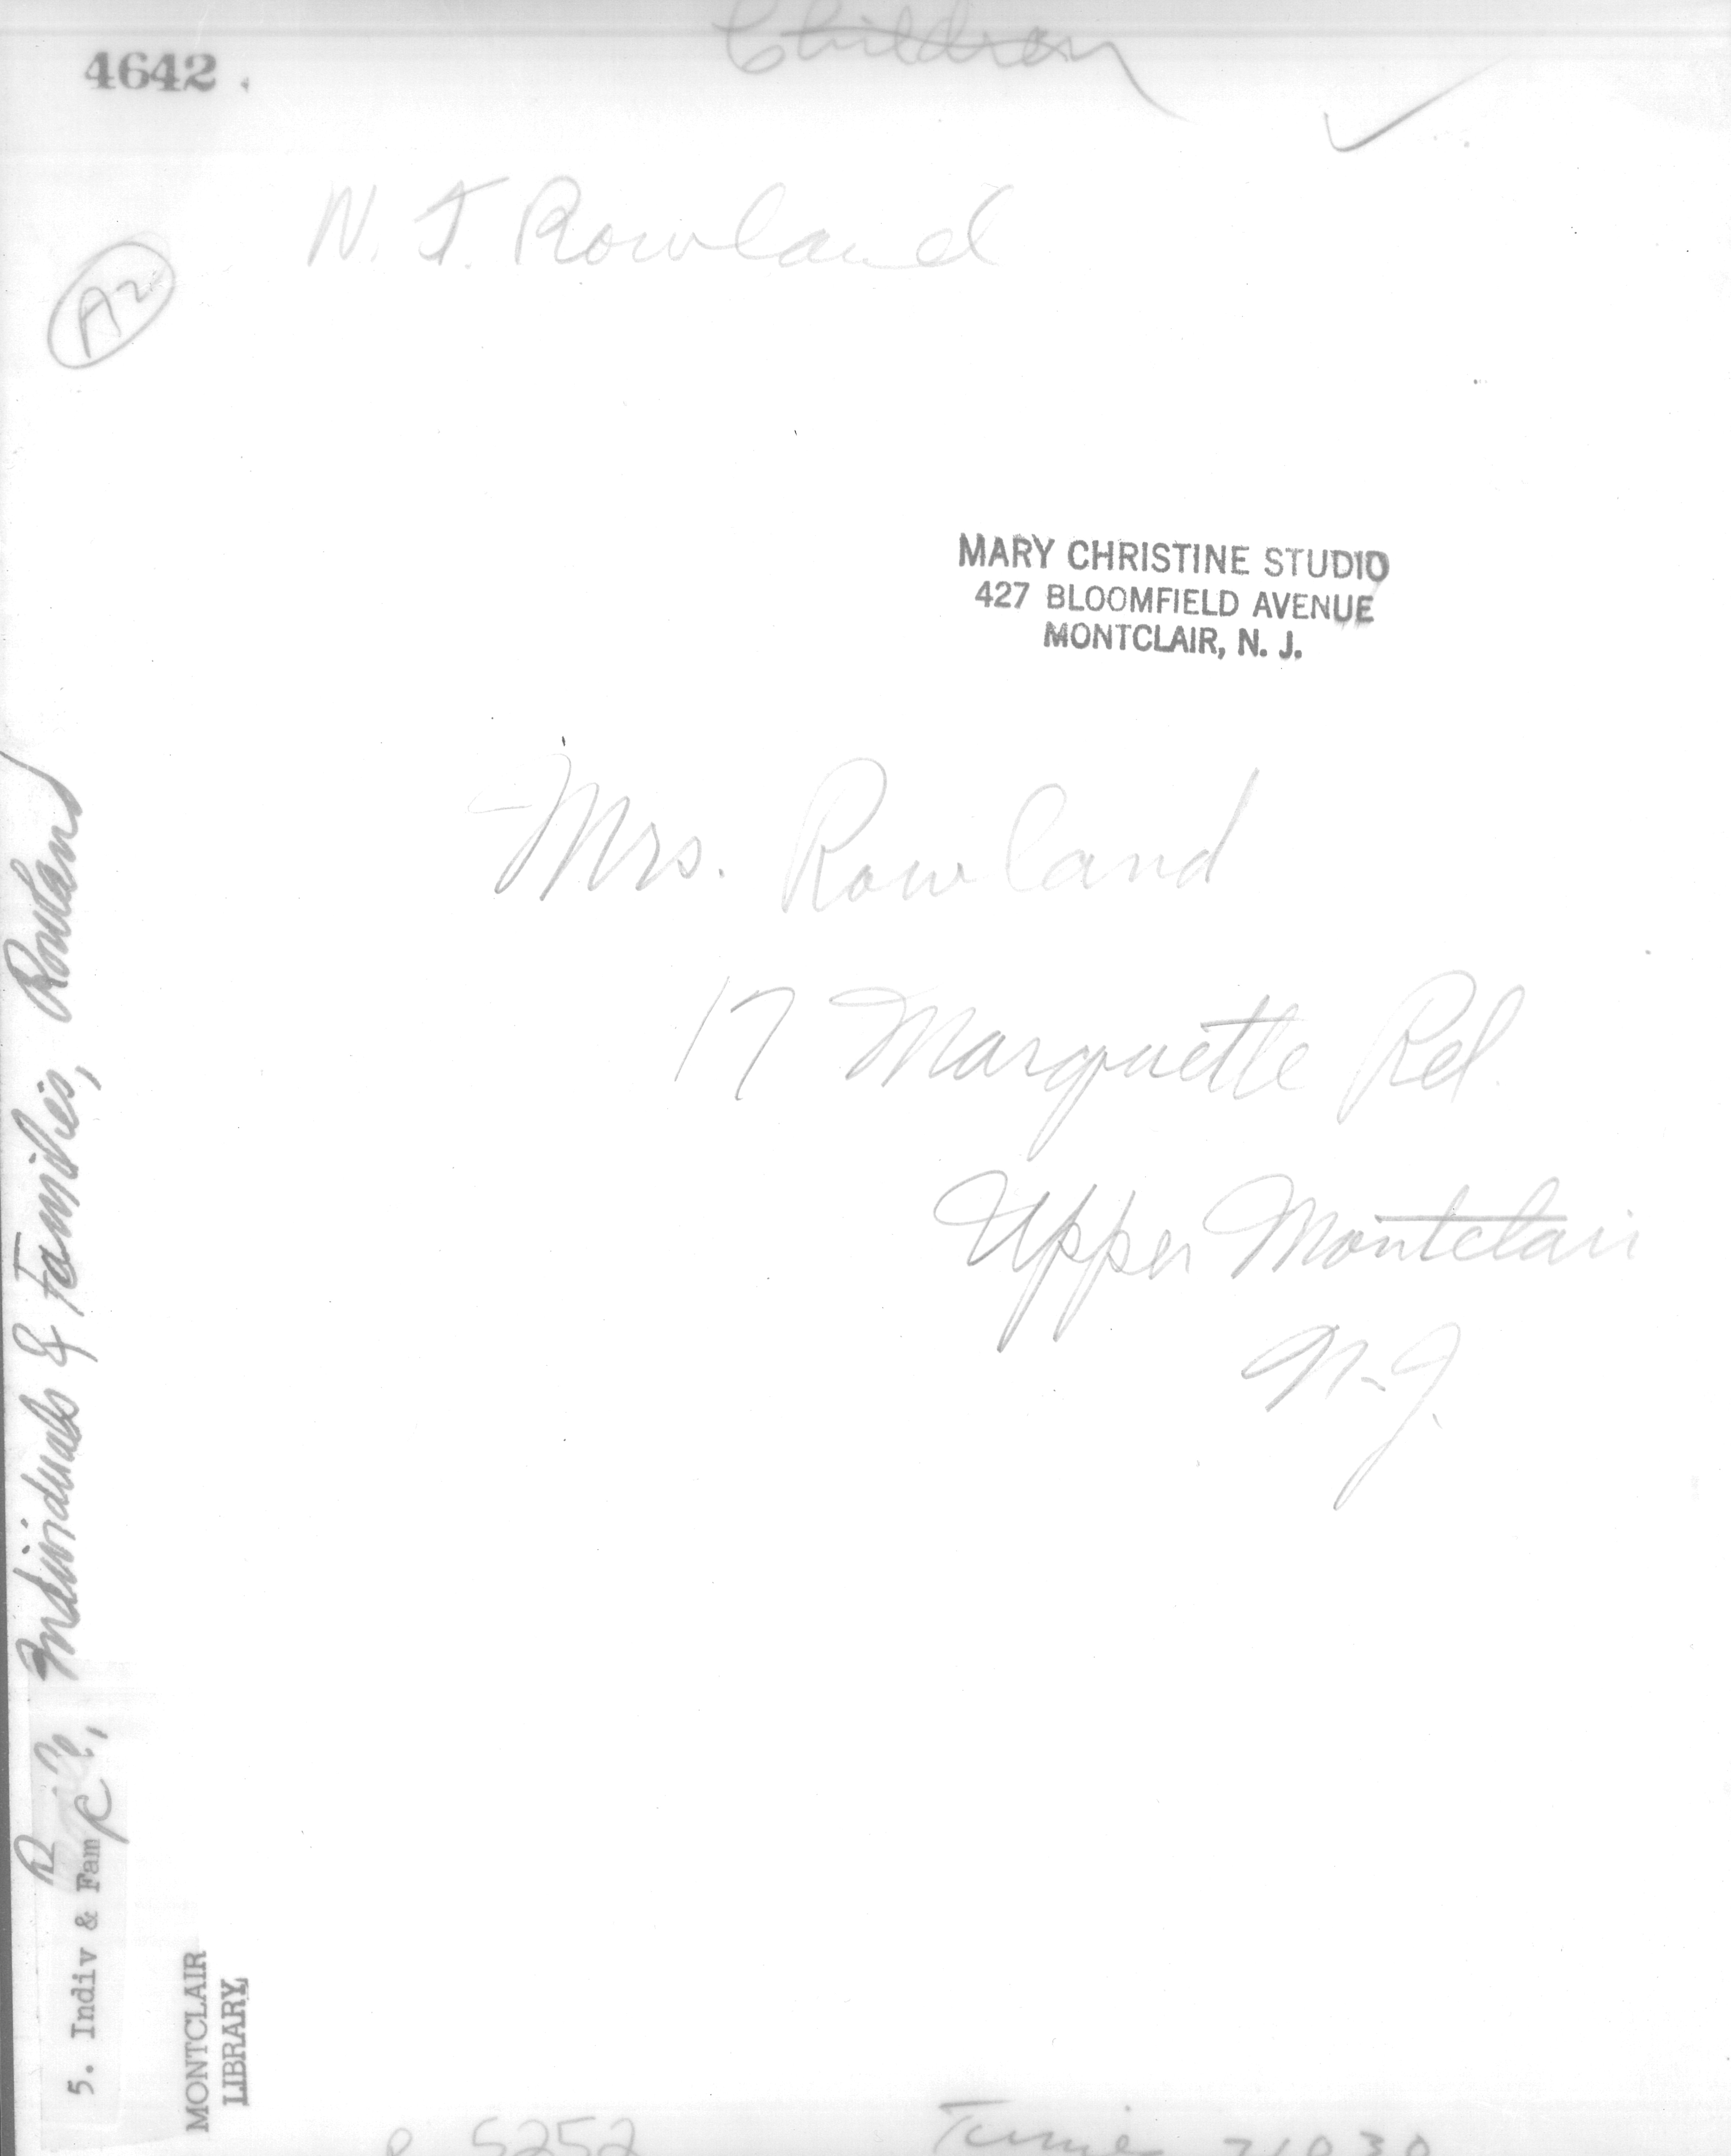 Children
4642
N. J. Rowland
A2
MARY CHRISTINE STUDIO
427 BLOOMFIELD AVENUE
MONTCLAIR, N. J.
Mrs. Rowland
17 Marquette Rd.
Upper Montclair
N.J.
Individuals & Families, Rowland
R
5. Indiv & Fam
MONTCLAIR
LIBRARY
5252